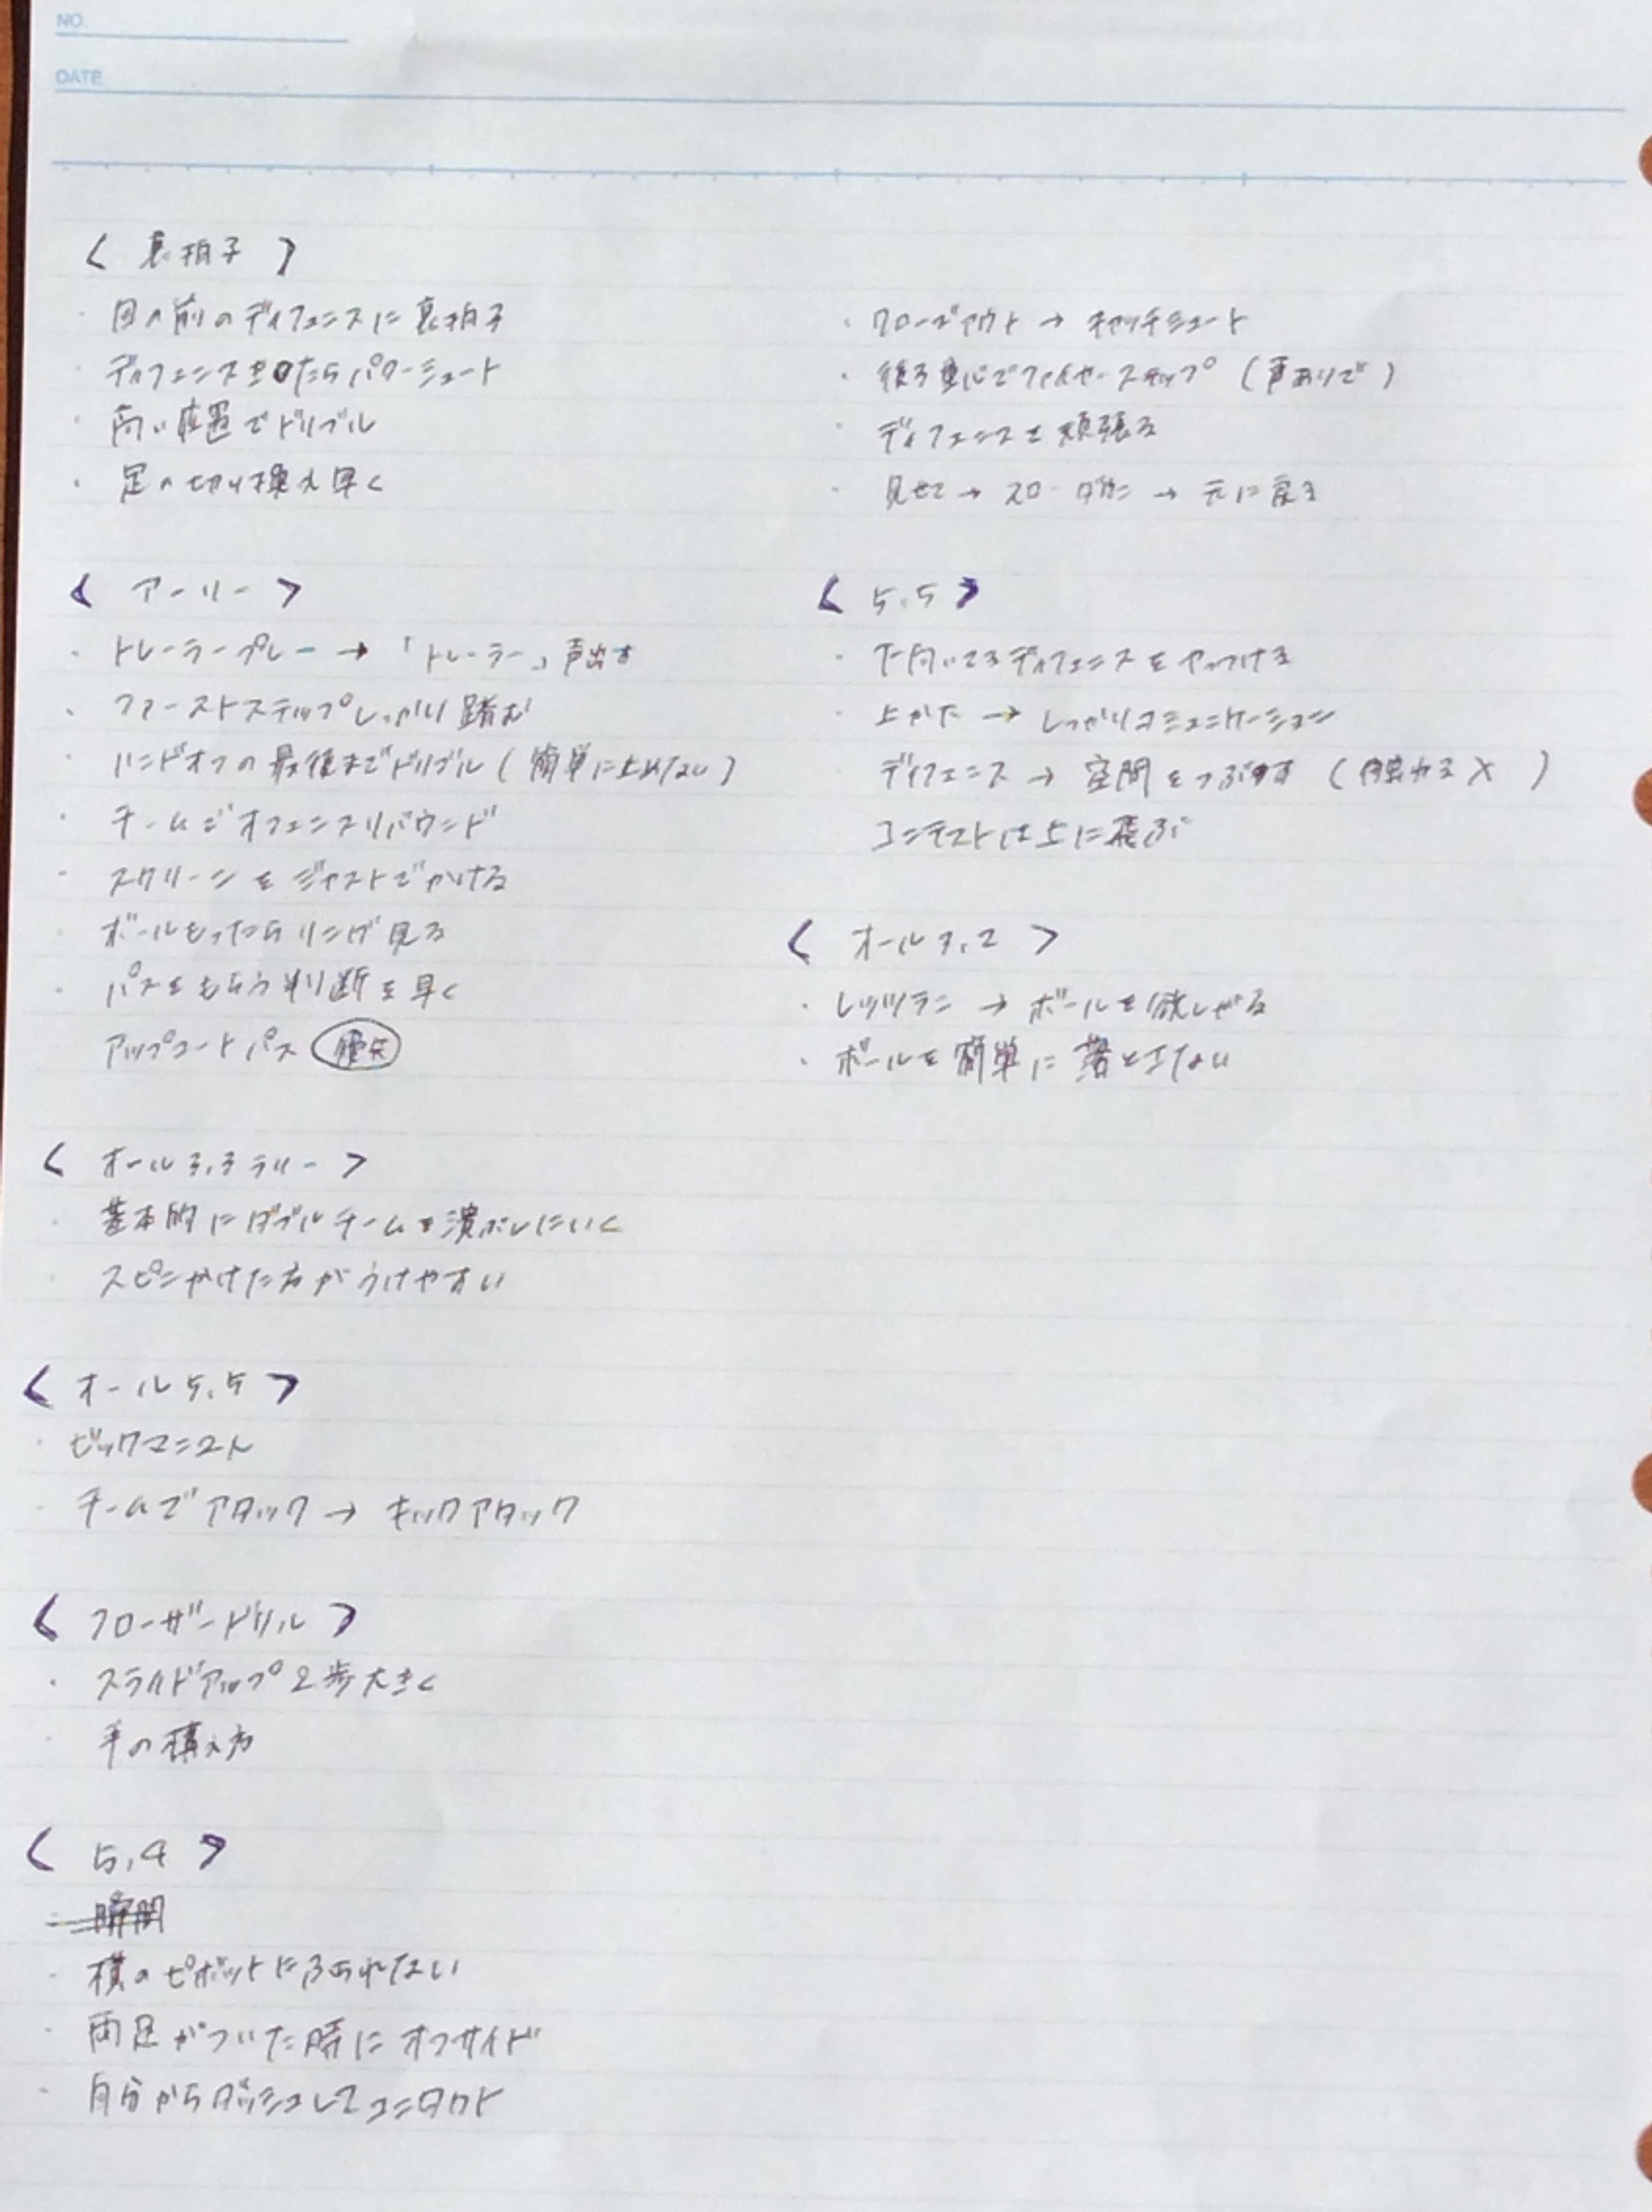 NO.
DATE
〈 裏拍子 〉
・目の前のディフェンスに裏拍子
・ディフェンス たらパワーシュート
・高い位置でドリブル
・足の切り換え早く
〈 アーリー 〉
・トレーラープレー → 「トレーラー」声出す
・ファーストステップしっかり踏む
・ハンドオフの最後までドリブル(簡単に止めない)
・チームでオフェンスリバウンド
・スクリーンをジャストでかける
・ボールもったらリング見る
・パスをもらう判断を早く
アップコートパス
〈 オール3,3ラリー 〉
・基本的にダブルチームを潰しにいく
・スピンかけた方がうけやすい
〈 オール5,5 〉
・ビックマン2人
・チームでアタック → キックアタック
〈 クローザードリル 〉
・スライドアップ2歩大きく
・手の構え方
〈 5,4 〉
・瞬間
・横のピボットにふられない
・両足がついた時にオフサイド
・自分からダッシュしてコンタクト
・クローズアウト → キャッチシュート
・後ろ重心でファイヤーステップ(声ありで)
・ディフェンスを頑張る
・見せて → スローダウン → 元に戻る
〈 5,5 〉
・下向いてるディフェンスをやっつける
・上かた → しっかりコミュニケーション
ディフェンス → 空間をつぶす( X )
コンテストは上に飛ぶ
〈 オール3,2 〉
・レッツラン → ボールを欲しがる
・ボールを簡単に落とさない